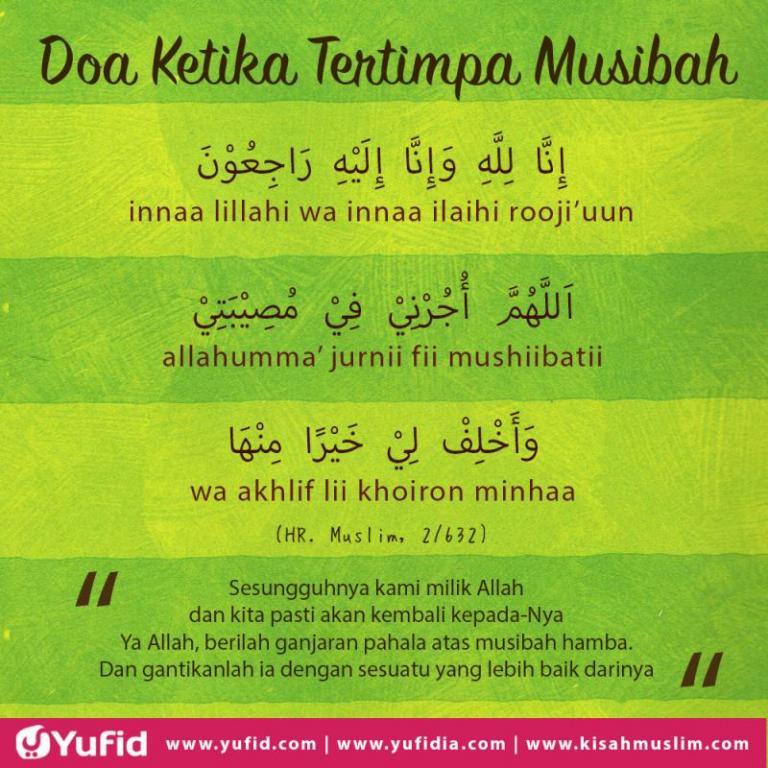 Doa Ketika Tertimpa Musibah
إِنَّا لِلَّهِ وَإِنَّا إِلَيْهِ رَاجِعُوْنَ
innaa lillahi wa innaa ilaihi rooji’uun
اَللَّهُمَّ أُجُرْنِيْ فِيْ مُصِيْبَتِيْ
allahumma’ jurnii fii mushiibatii
وَأَخْلِفْ لِيْ خَيْرًا مِنْهَا
wa akhlif lii khoiron minhaa
(HR. Muslim, 2/632)
"Sesungguhnya kami milik Allah
dan kita pasti akan kembali kepada-Nya
Ya Allah, berilah ganjaran pahala atas musibah hamba.
Dan gantikanlah ia dengan sesuatu yang lebih baik darinya"
Yufid www.yufid.com | www.yufidia.com | www.kisahmuslim.com